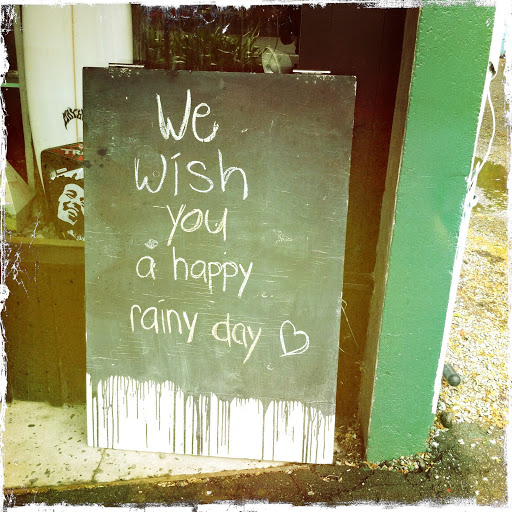 We
wish
you
a happy
rainy day ♡